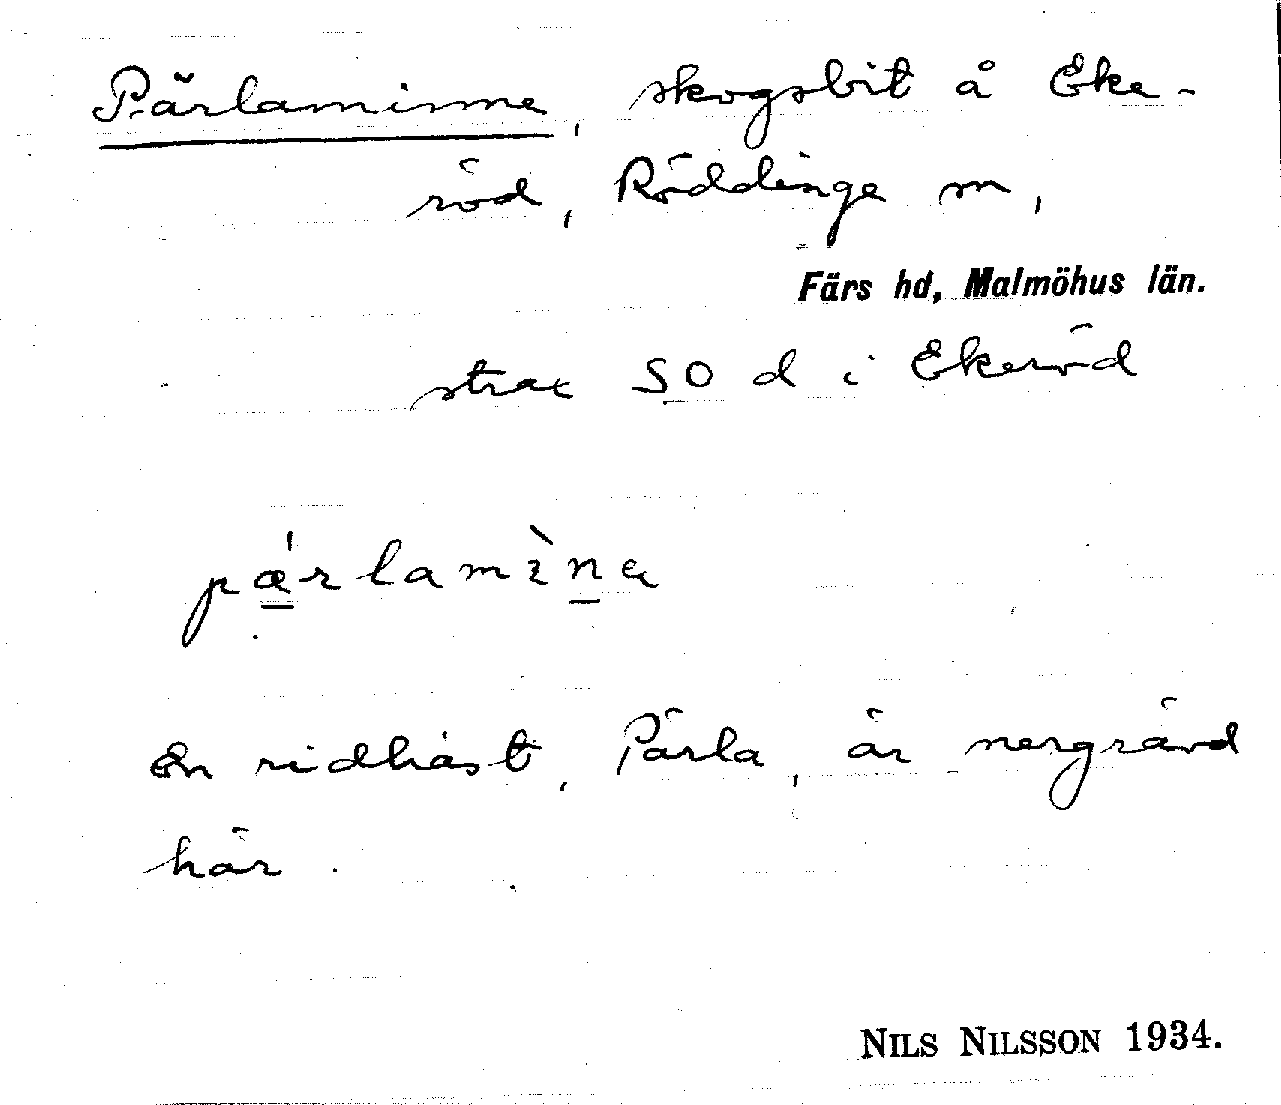 Pärlaminne, skogsbit å Eke-
röd, Röddinge sn,
Färs hd, Malmöhus län.
strax SO d i Ekeröd
pǽrlamìnа
En ridhäst, Pärla, är nergrävd
här.
NILS NILSSON 1934.